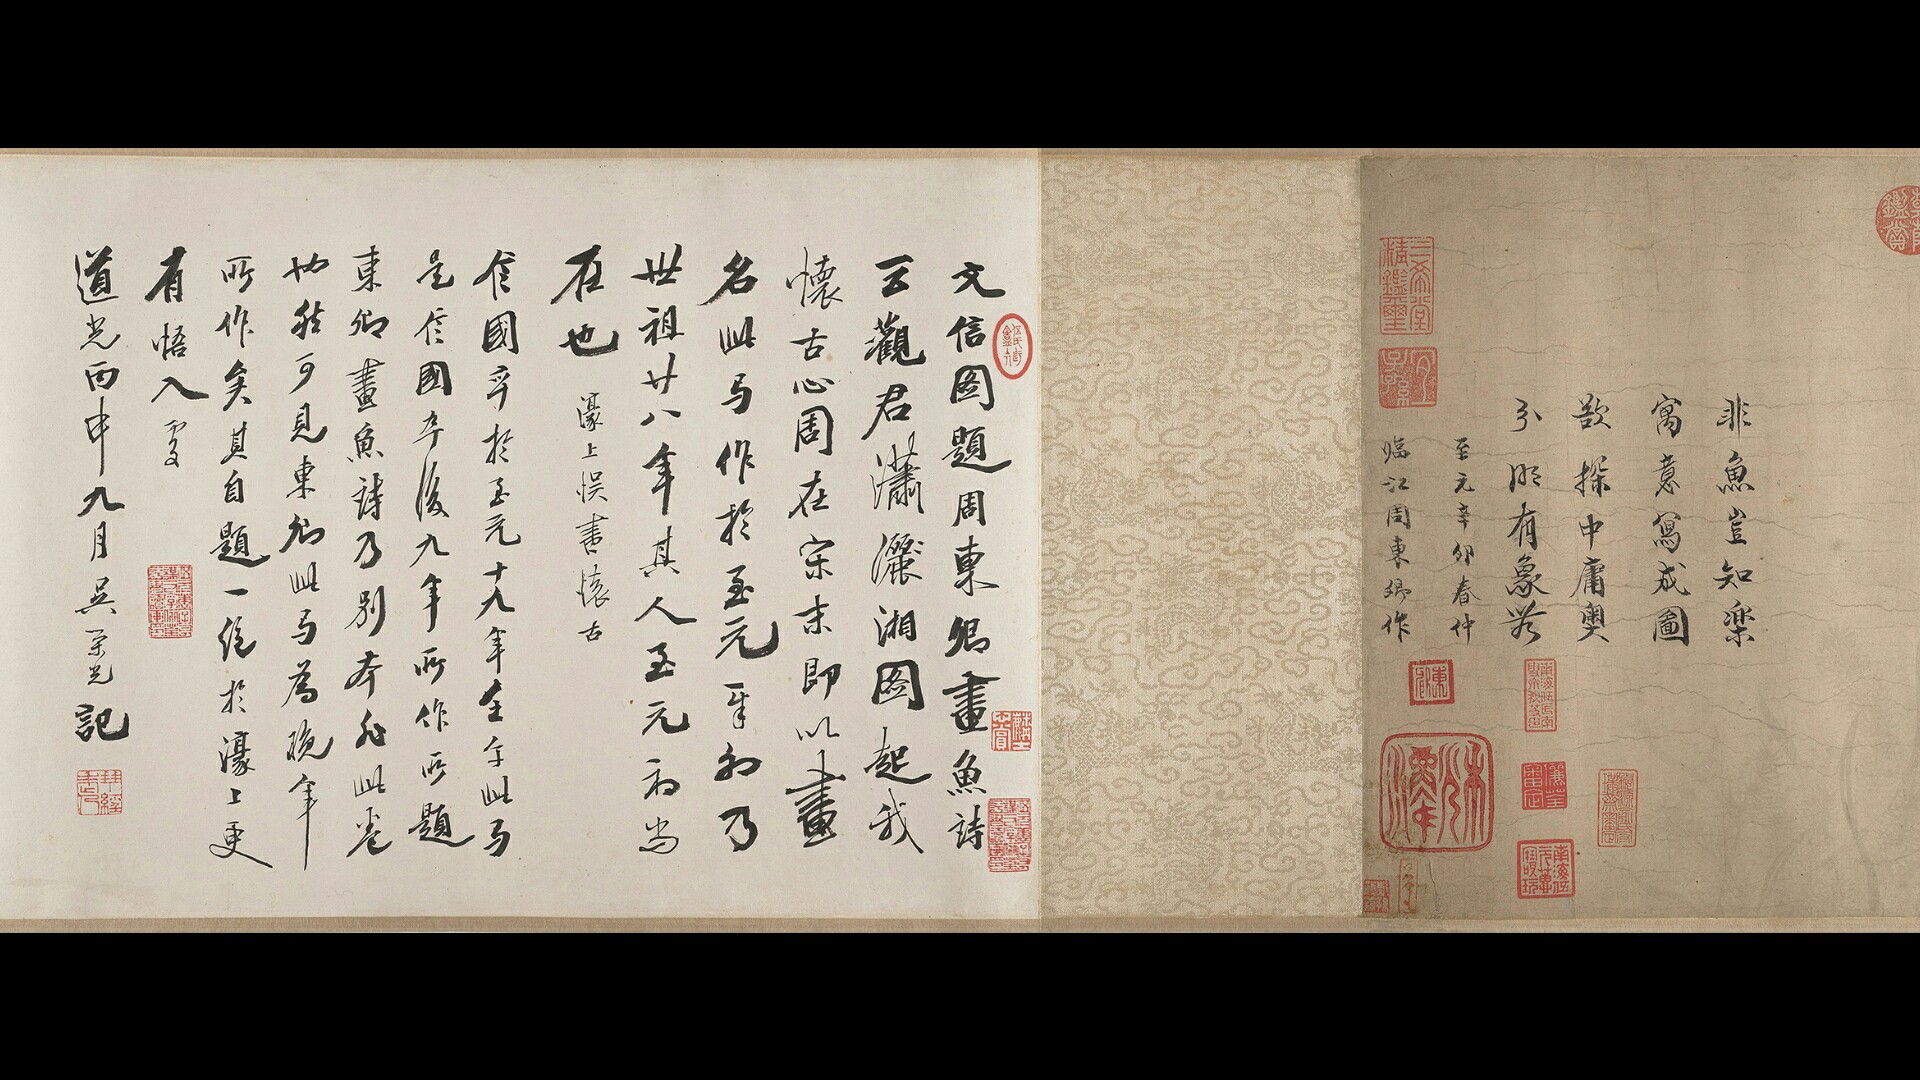 非魚豈知樂
寓意寫成圖
欲探中庸奧
分明有象無
至元辛卯春仲
臨江周東卿作
三希堂精鑑璽
宜子孫
東卿
文信國題周東卿畫魚詩
云觀君瀟灑湘圖起我
懷古心周在宋末即以畫
名此弓作於至元辛卯乃
世祖廿八年其人至元初尚
在也 濠上悮書懷古
信國卒於至元十九年壬午此弓
是信國卒後九年所作所題
東卿畫魚詩乃別本非此卷
也然可見東卿此弓為晚年
所作矣其自題一絕於濠上更
有悟入處
道光丙申九月吳榮光記